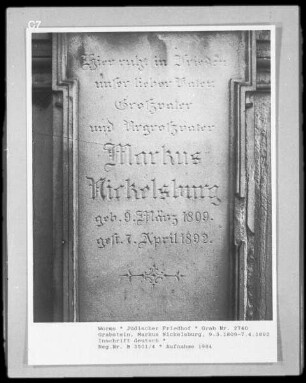 Hier ruht in Frieden
unser lieber Vater
Großvater
und Urgroßvater
Markus
Nickelsburg
geb. 9. März 1809.
gest. 7. April 1892.
Worms * Jüdischer Friedhof * Grab Nr. 774G
Grabstein, Markus Nickelsburg, 9.3.1809-7.4.1892
Inschrift deutsch *
Reg.Nr. B 2001/4 * Aufnahme 1984